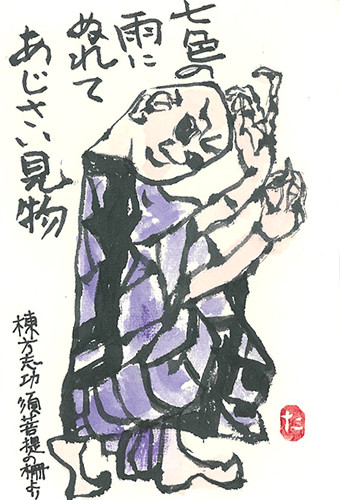 七色の
雨に
ぬれて
あじさい見物
棟方志功須菩提の柵より
た